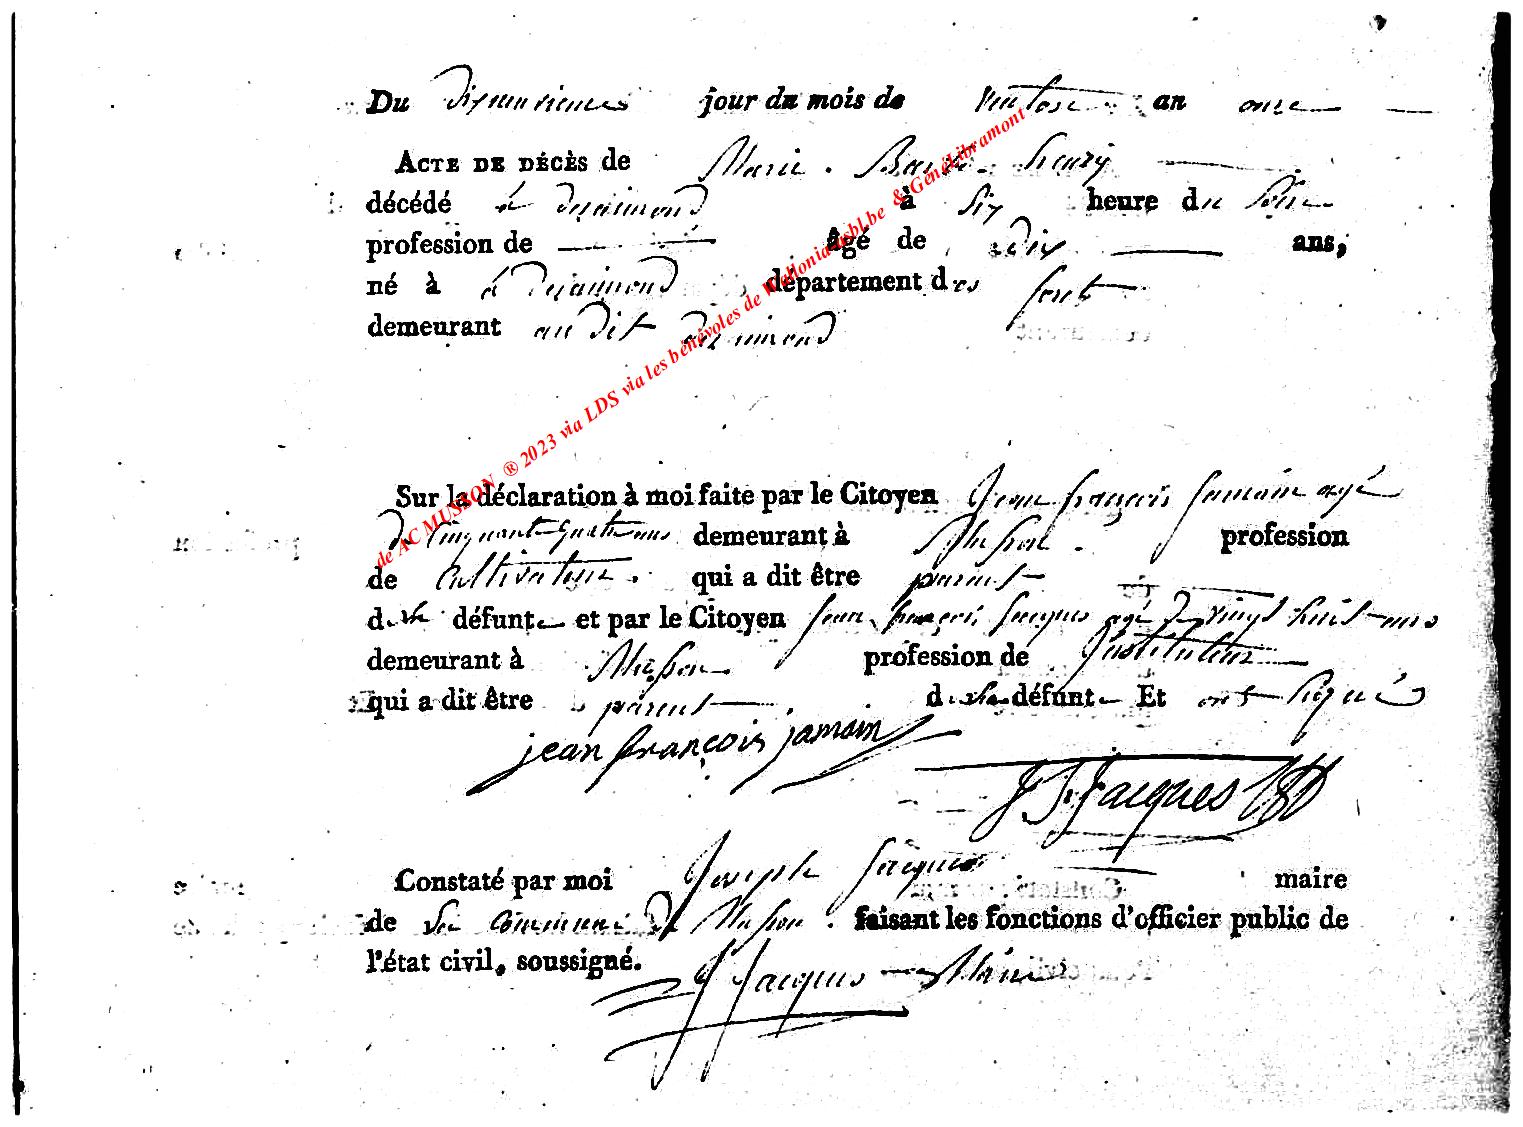 Du dixneuvieme jour du mois de Ventose an onze
ACTE DE DÉCÈS de Marie Barbe henry
décédé à à six heure du soire
profession de âgé de dix ans,
né à à département des forets
demeurant au dit
Sur la déclaration à moi faite par le Citoyen Jean françois jamain agé
de Cinquant quatre ans demeurant à Musson . profession
de Cultivateur . qui a dit être parent
de la défunte et par le Citoyen jean françois jacques agé de vingt huit ans
demeurant à Musson profession de Justituteur
qui a dit être parent . de la défunte Et ont signé
jean françois jamain
J F Jacques
Constaté par moi Joseph jacques maire
de la Commune de Musson . faisant les fonctions d'officier public de
l'état civil, soussigné. J Jacques Maire
de AC MUSSON ® 2023 via LDS via les bénévoles de Wallonia asbl.be & GénéLibramont